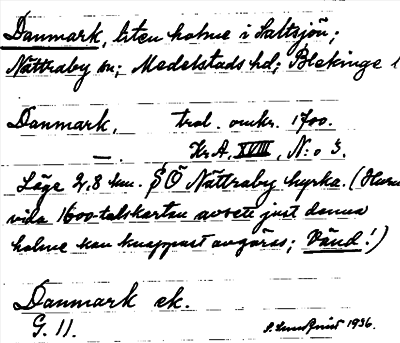 Danmark, liten holme i Saltsjön;
Nättraby sn; Medelstads hd; Blekinge l
Danmark, trol. omkr. 1700.
— . Kr A. XVIII, N:o 3.
Läge 2,8 km. SÖ Nättraby kyrka. (Huru
vida 1600-talskartan avsett just denna
holme kan knappast avgöras; Vänd!)
Danmark ek.
G. 11. S. Lundquist 1936.